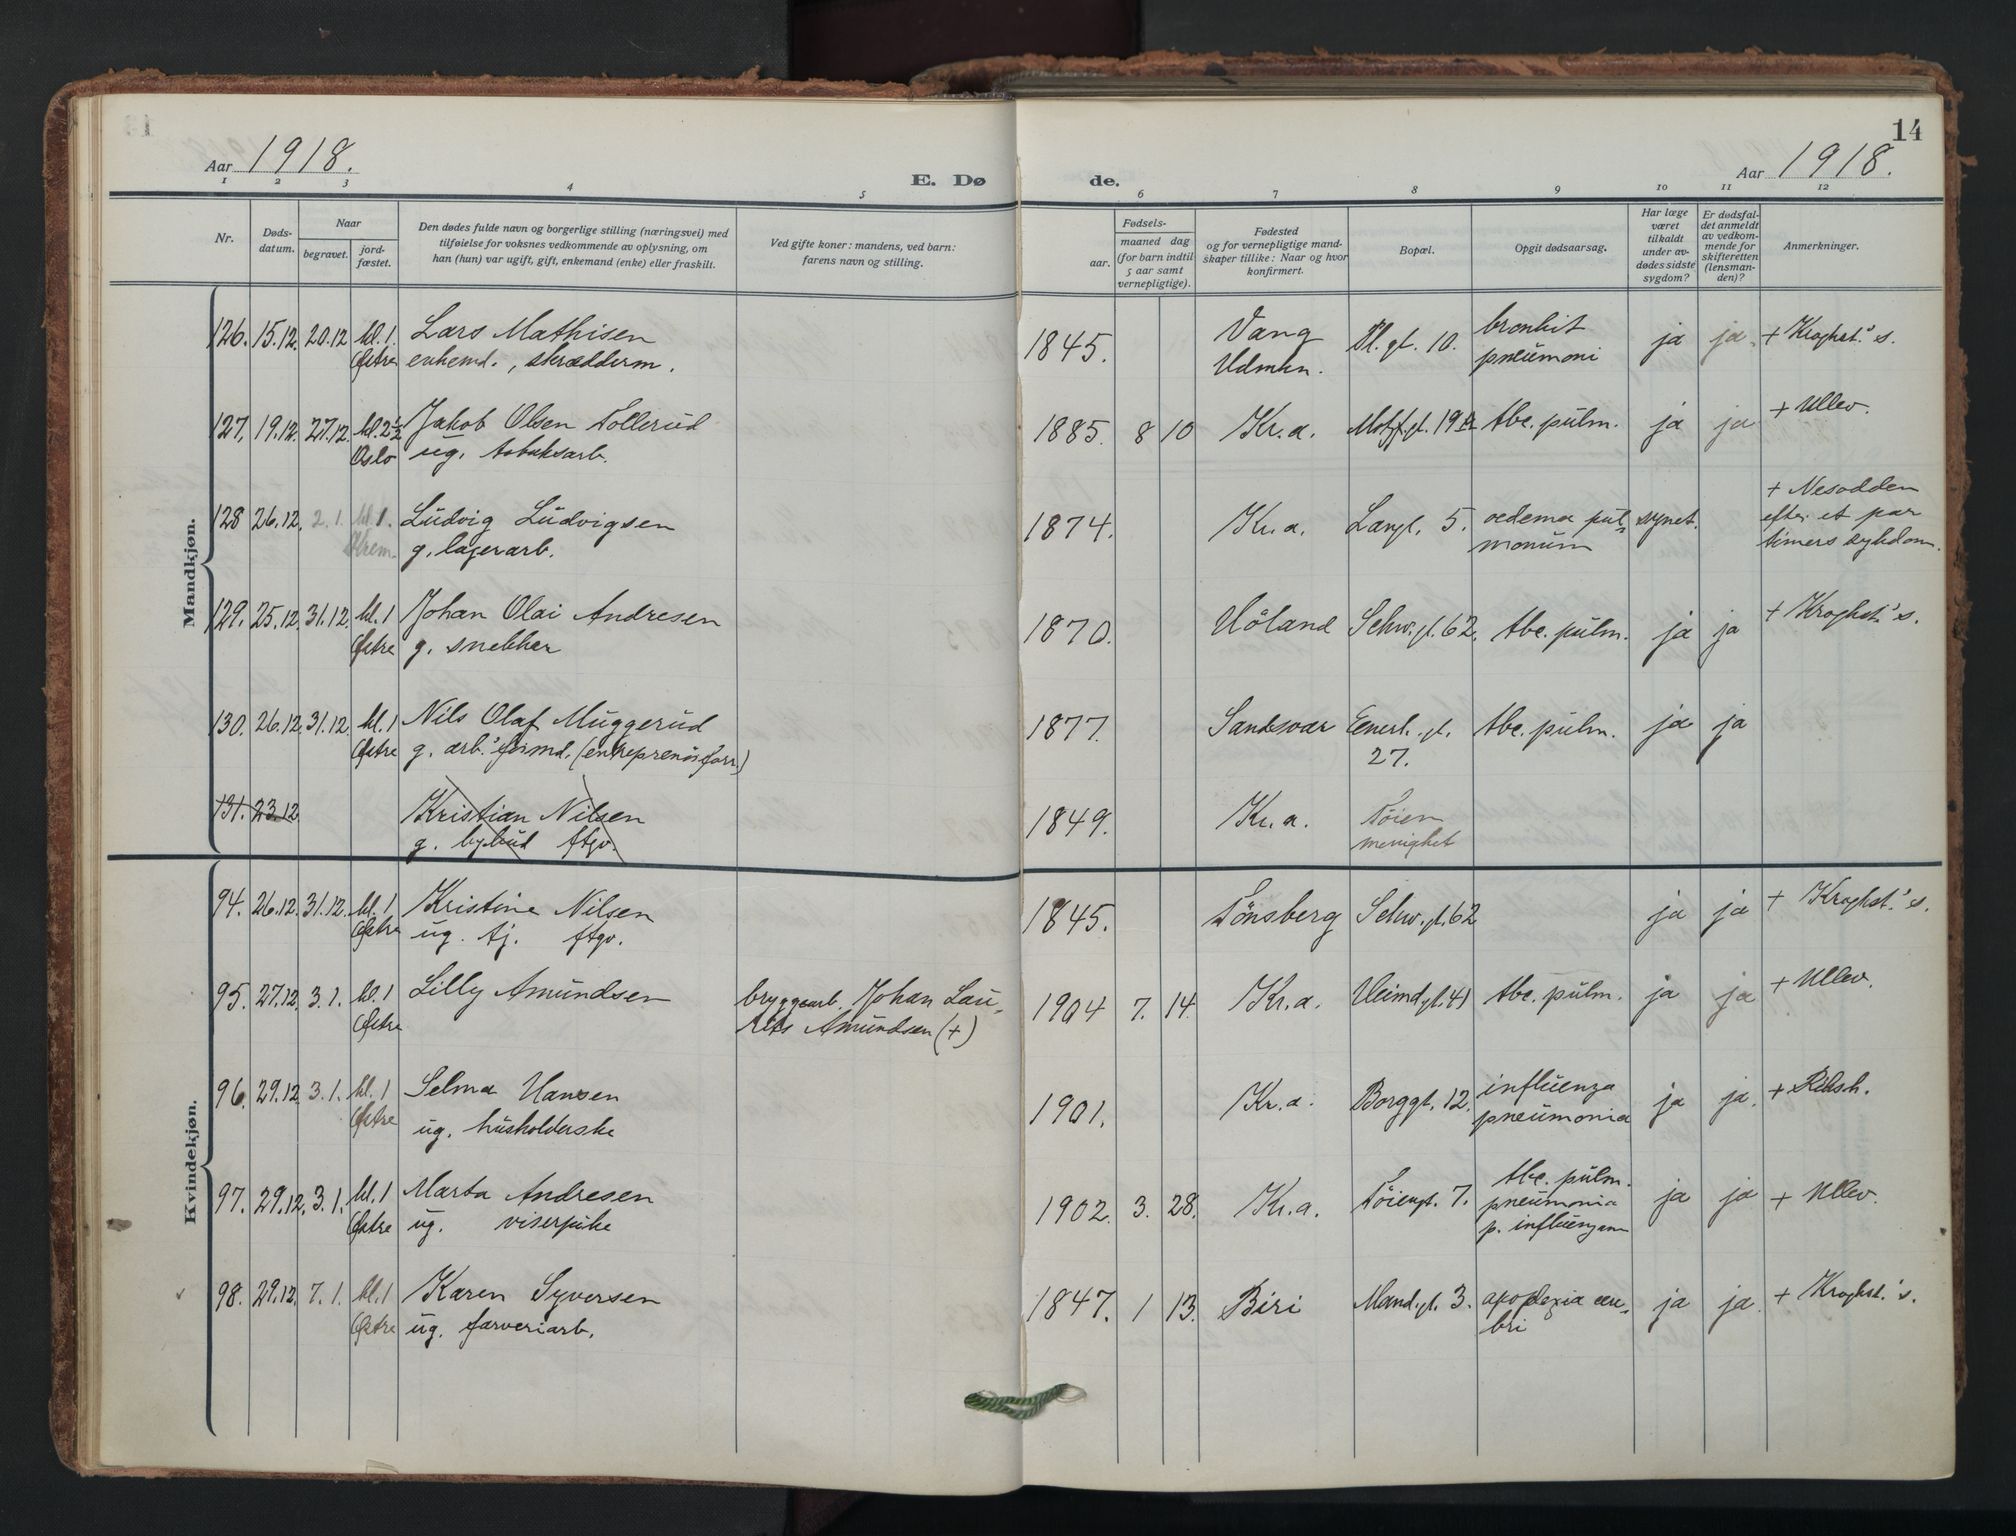 Aar 1918.
E. Dø de.
Aar 1918.
14
1 2 3 4 5 6 7 8 9 10 11 12
Nr.
Døds-
datum.
Naar
begravet.
jord-
fæstet.
Den dødes fulde navn og borgerlige stilling (næringsvei) med
tilføielse for voksnes vedkommende av oplysning, om
han (hun) var ugift, gift, enkemand (enke) eller fraskilt.
Ved gifte koner: mandens, ved barn:
farens navn og stilling.
Fødsels-
aar.
maaned dag
(for barn indtil
5 aar samt
vernepligtige).
Fødested
og for vernepligtige mand-
skaper tillike: Naar og hvor
konfirmert.
Bopæl.
Opgit dødsaarsag.
Har læge
været
tilkaldt
under av-
dødes sidste
sygdom?
Er dødsfal-
det anmeldt
av vedkom-
mende for
skifteretten
(lensman-
den)?
Anmerkninger.
Mandkjøn.
126. 15.12. 20.12 kl. 1. Lars Mathisen 1845. Vang Pl. gt. 10. bronkit ja ja. + Kroghst.'s.
Østre enkemd., skrædderm. Hdmkn. pneumoni
127. 19.12. 27.12. kl. 2½ Jakob Olsen Tollerud 1885. 8 10 Kr.a. Motzf.gt. 19 A tbc. pulm. ja ja + Ullev.
Oslo ug. tobaksarb.
128 26.12. 2.1. kl. 1. Ludvig Ludvigsen 1874. Kr.a. Langl. 5. oedema pul- synet. + Nesodden
Krem. g. lagerarb. monum efter et par
timers sykdom.
129. 25.12. 31.12. kl. 1 Johan Olai Andresen 1870. Höland Schw.gt. 62. tbc. pulm. ja ja + Kroghst.'s.
Østre g. snekker
130. 26.12. 31.12. kl. 1 Nils Olaf Muggerud 1877. Sandsvær Eenerh.gt. tbc. pulm. ja ja
Østre g. arb.'formd. (entreprenörforr.) 27.
131. 23.12 Kristian Nilsen 1849. Kr.a. Töien
g. bybud ftgv. menighet
Kvindekjøn.
94. 26.12. 31.12. kl. 1 Kristine Nilsen 1845. Tönsberg Schw.gt. 62 ja ja + Kroghst.'s.
Østre ug. tj. ftgv.
95. 27.12. 3.1. kl. 1 Lilly Amundsen bryggearb. Johan Lau- 1904 7. 14. Kr.a. Heimd.gt. 41 tbc. pulm. ja ja + Ullev.
Østre ritz Amundsen (+)
96. 29.12. 3.1. kl. 1 Selma Hansen 1901. Kr.a. Borggt. 12. influenza ja ja. + Riksh.
Østre ug. husholderske pneumonia
97. 29.12. 3.1. kl. 1 Marta Andresen 1902. 3. 28. Kr.a. Töiengt. 7. tbc. pulm. ja ja + Ullev.
Østre ug. viserpike pneumonia
p. influenzam
98. 29.12. 7.1. kl. 1 Karen Syversen 1847. 1 13. Biri Mand.gt. 3. apoplexia cere- ja ja. + Kroghst.'s.
Østre ug. farveriarb. bri